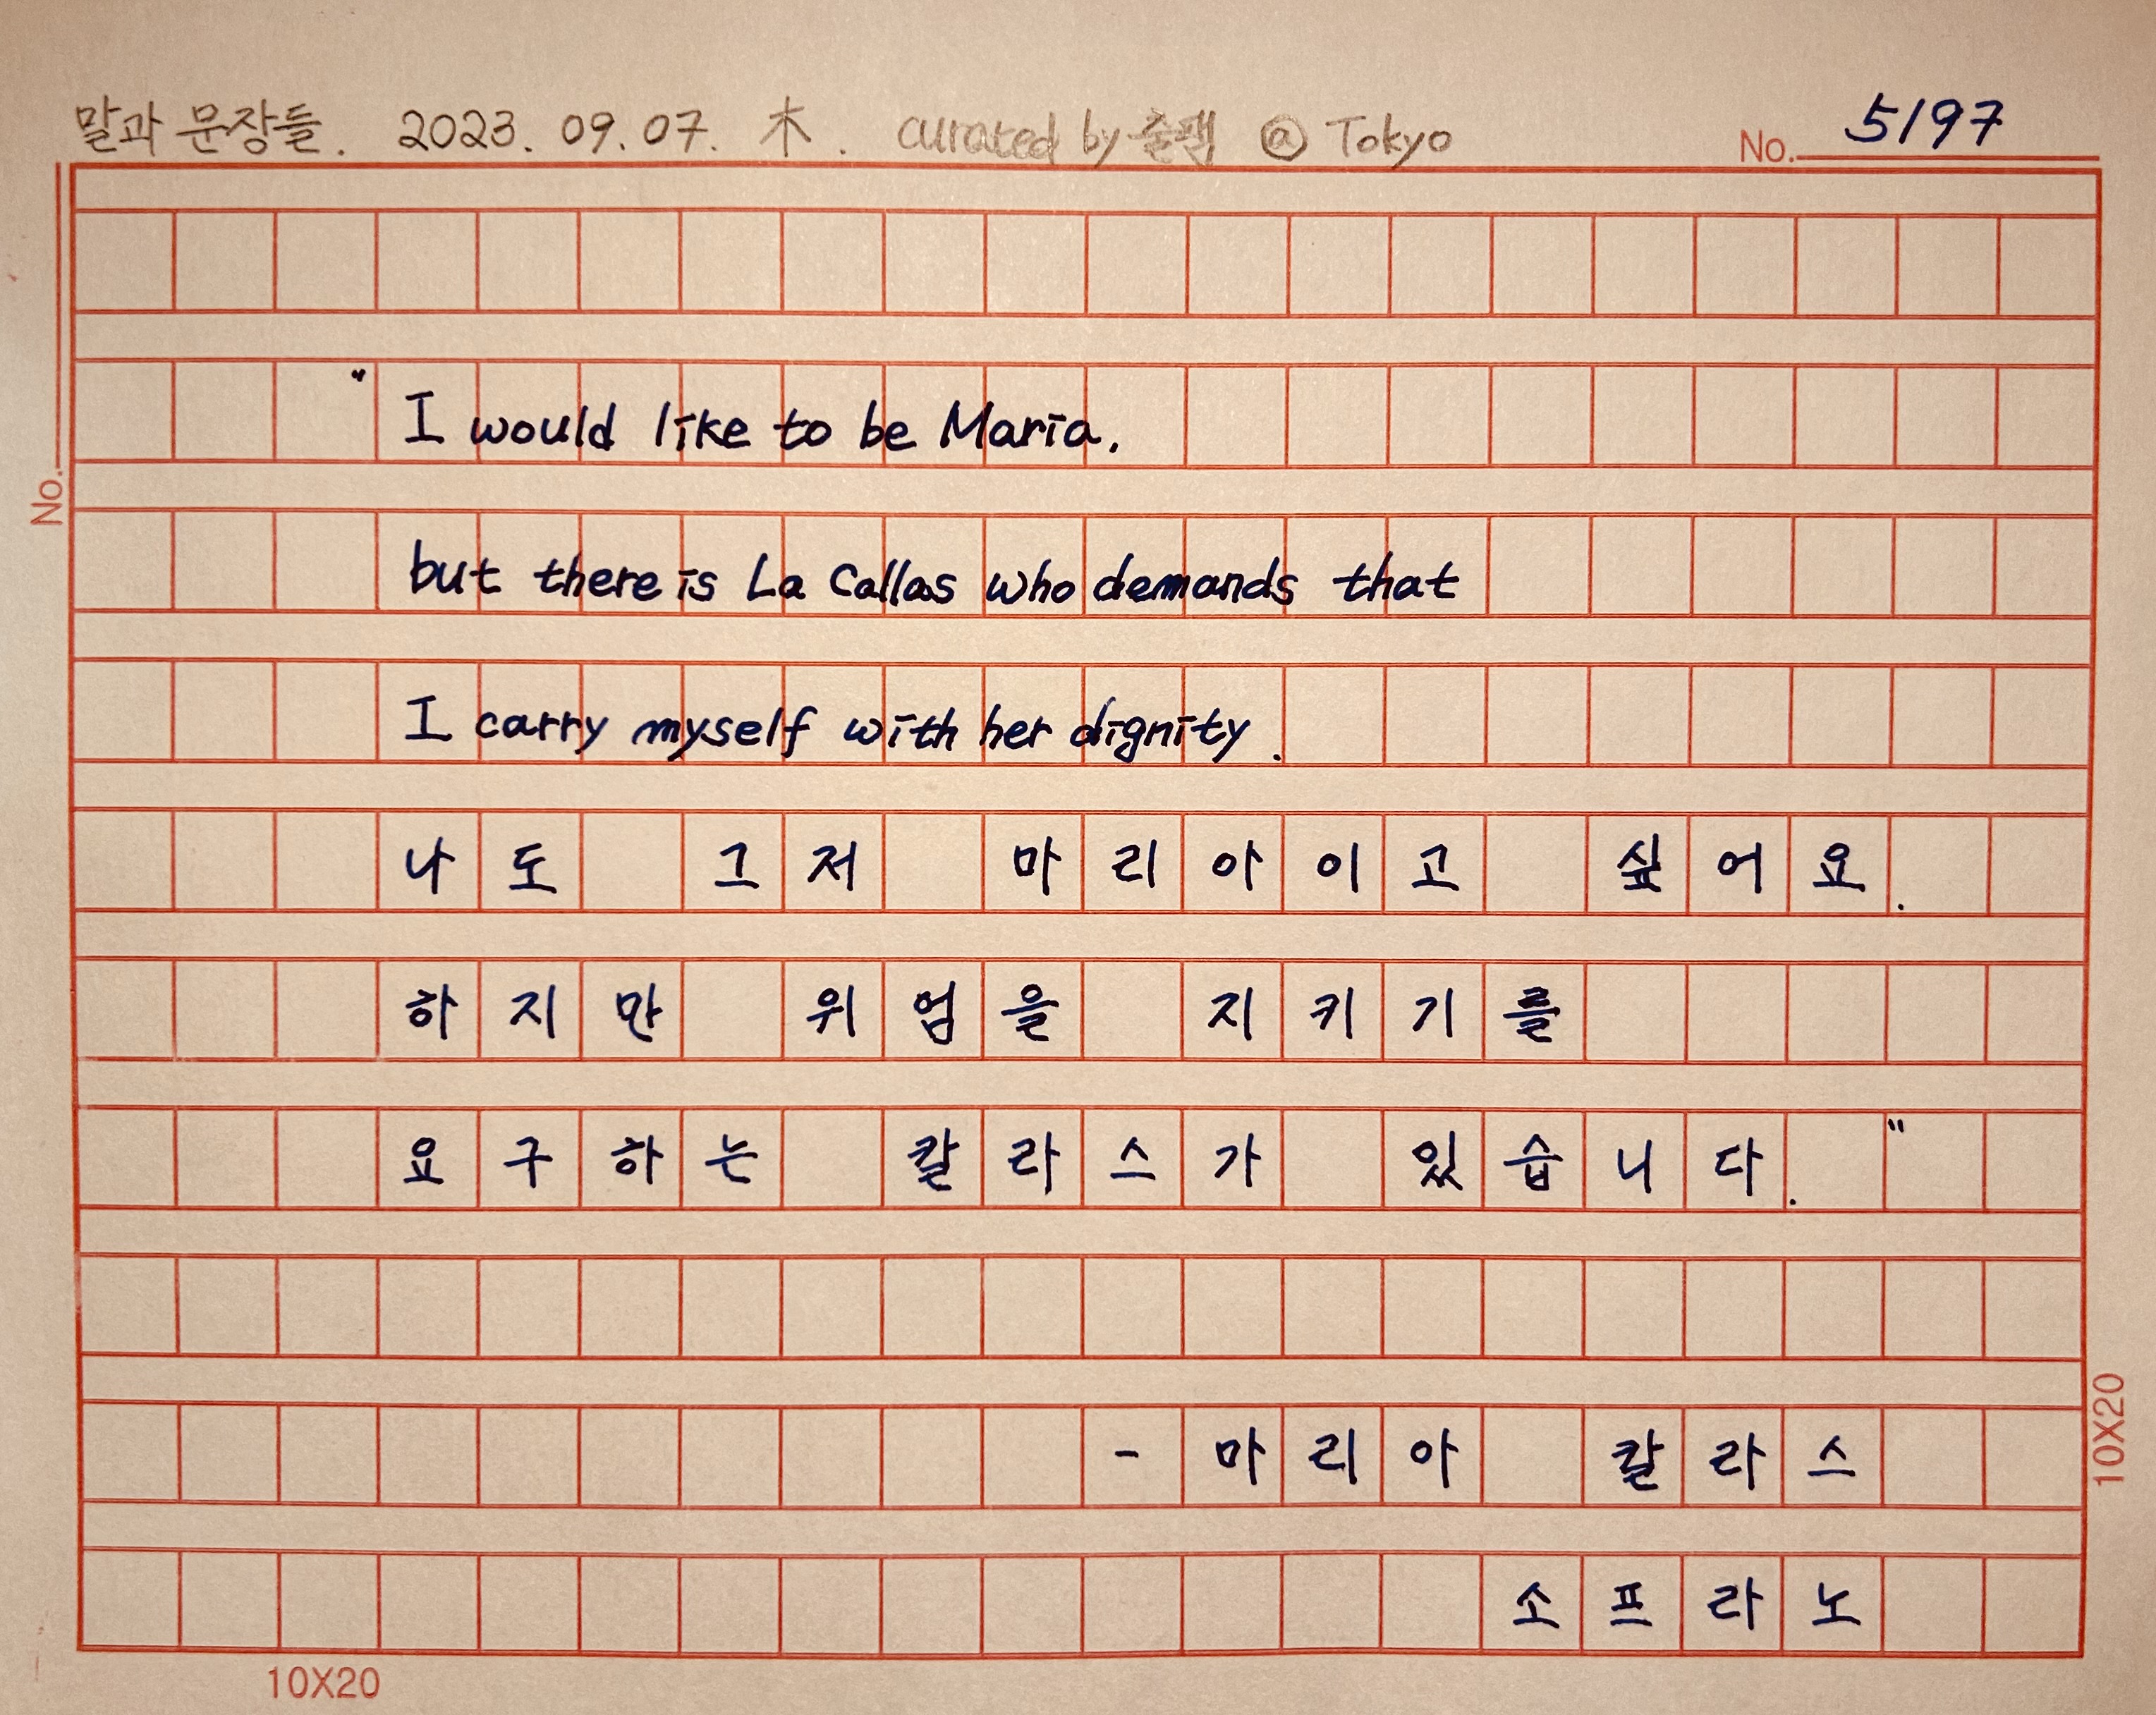 말과 문장들. 2023. 09. 07. 木. curated by 줄팩 @ Tokyo
No. 5197
No.
"I would like to be Maria.
but there is La Callas who demands that
I carry myself with her dignity.
나도 그저 마리아이고 싶어요.
하지만 위엄을 지키기를
요구하는 칼라스가 있습니다."
- 마리아 칼라스
소프라노
10X20
10X20